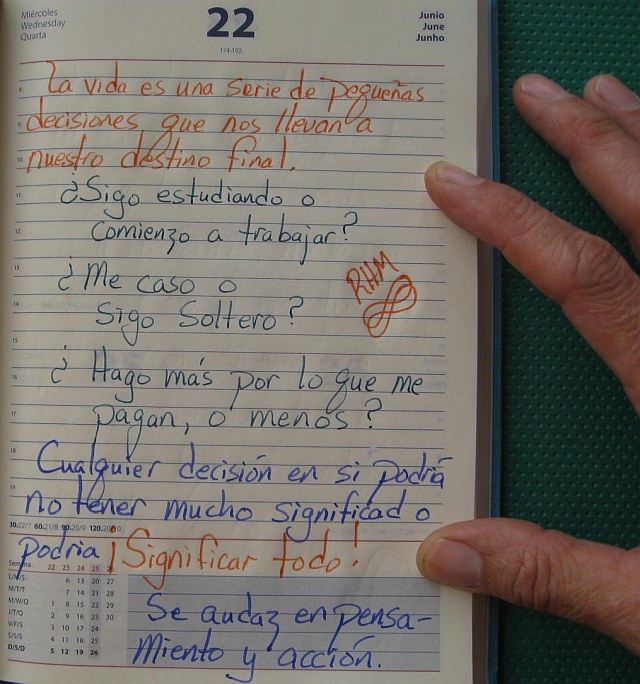 Miércoles
Wednesday
Quarta
22
174-192
Junio
June
Junho
La vida es una serie de pequeñas
decisiones que nos llevan a
nuestro destino final.
¿Sigo estudiando o
comienzo a trabajar?
¿Me caso o
sigo soltero?
RHM
¿Hago más por lo que me
pagan, o menos?
Cualquier decisión en si podriá
no tener mucho significado o
podria ¡Significar todo!
Se audaz en pensa-
miento y acción.
8
9
10
11
12
13
14
15
16
17
18
19
30.22/7 60.21/8 90.20/9 120.20/10
Semana 22 23 24 25
L/M/S 6 13 20 27
M/T/T 7 14 21 28
M/W/Q 1 8 15 22 29
J/T/Q 2 9 16 23 30
V/F/S 3 10 17 24
S/S/S 4 11 18 25
D/S/D 5 12 19 26